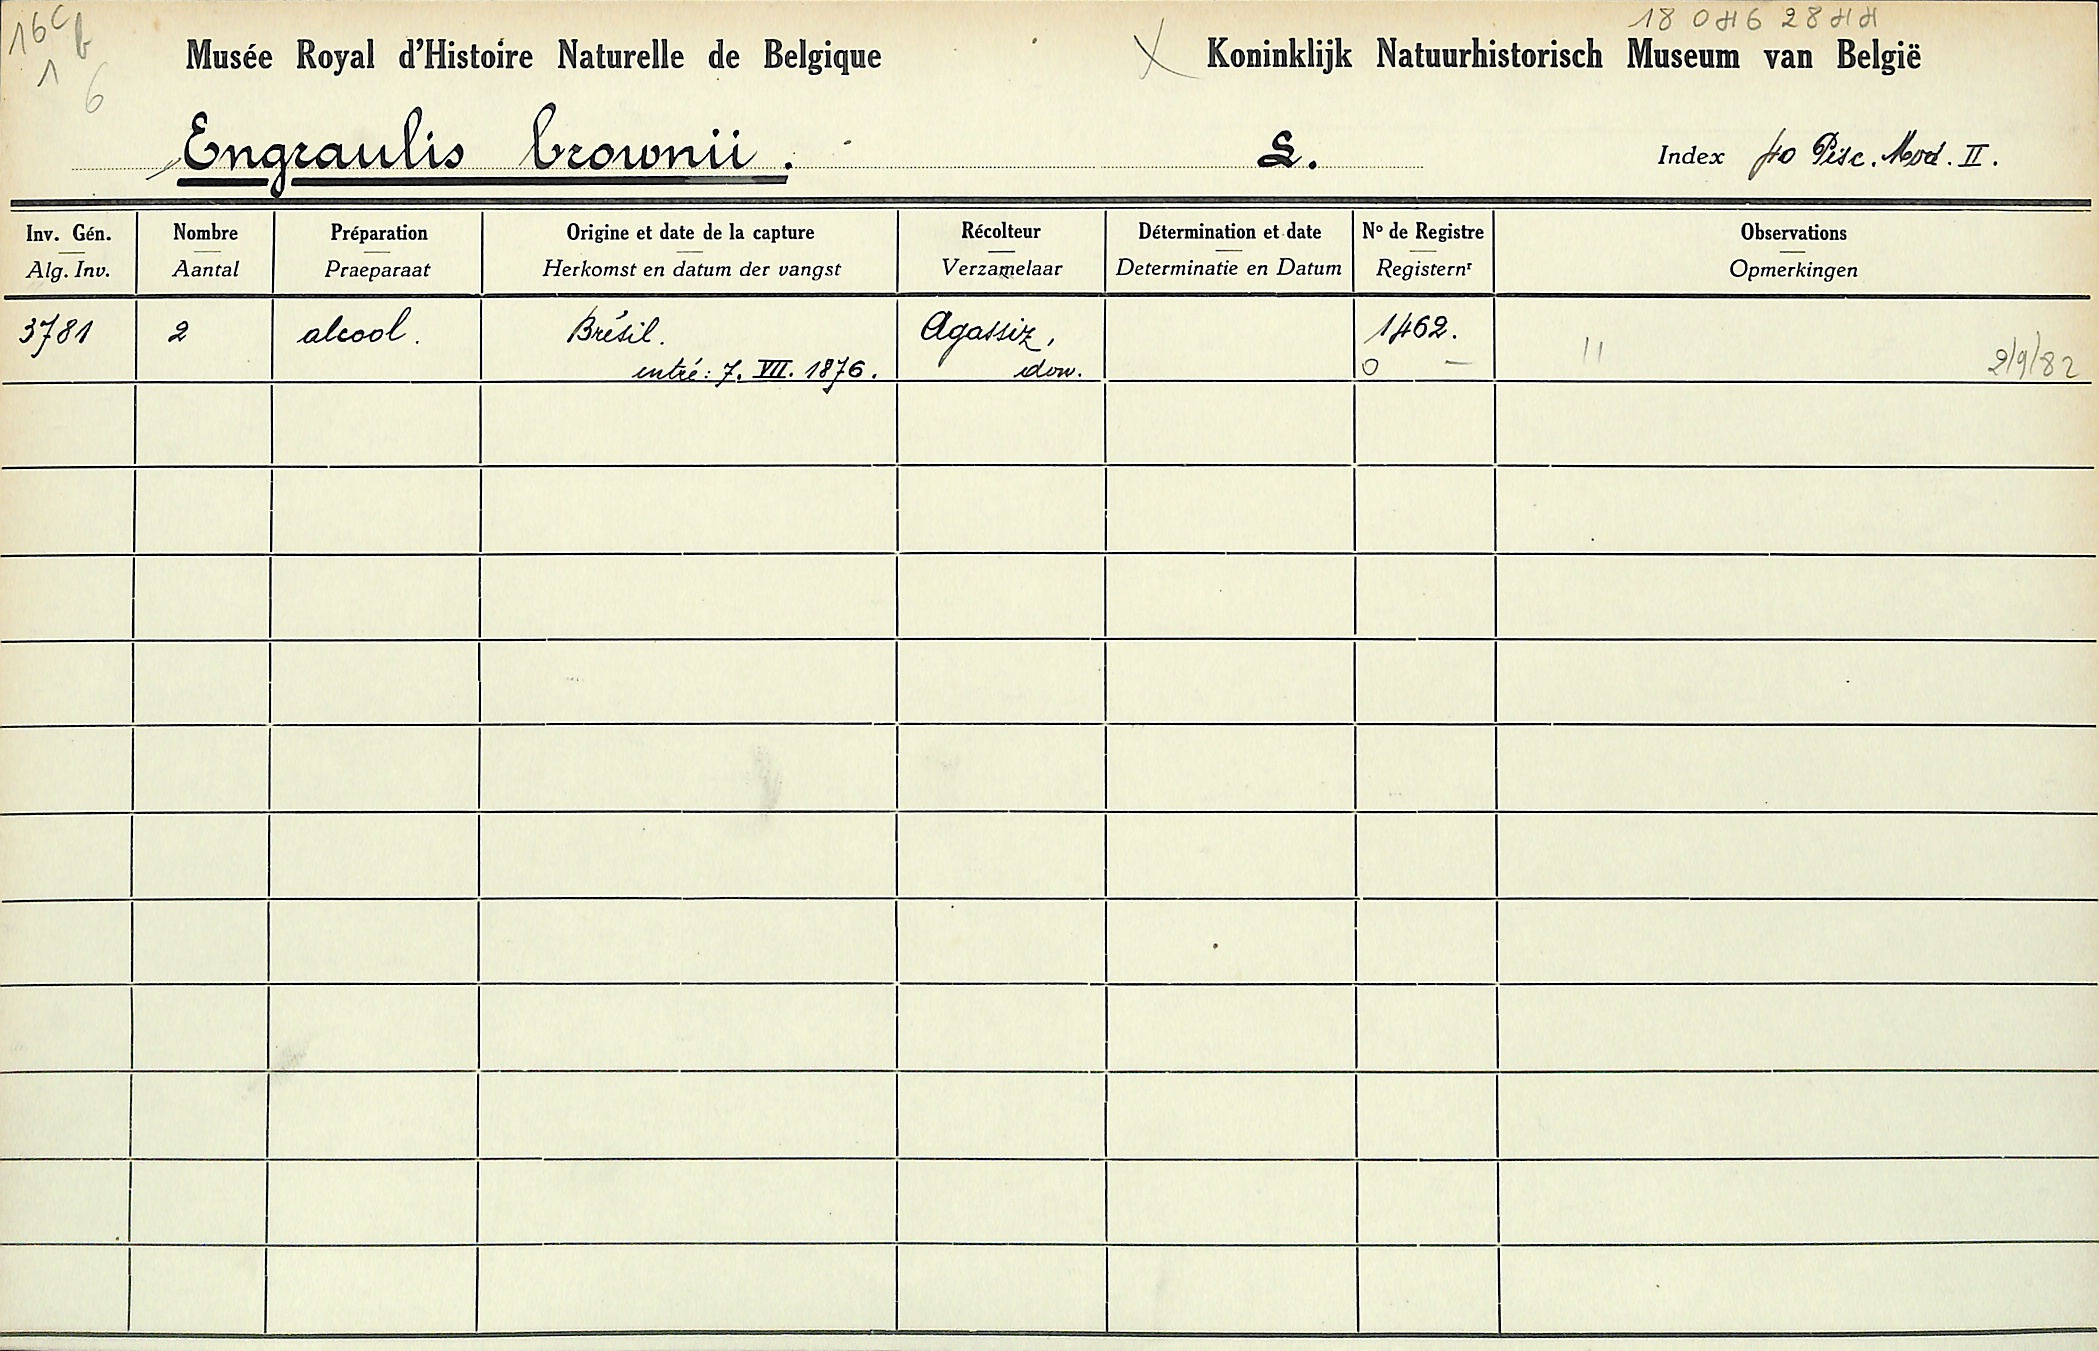 16C b
1 6
18 046 28 44
Musée Royal d'Histoire Naturelle de Belgique
X Koninklijk Natuurhistorisch Museum van België
Engraulis brownii. L. Index fo Pisc. Mod. II.
Inv. Gén. Nombre Préparation Origine et date de la capture Récolteur Détermination et date N° de Registre Observations
Alg. Inv. Aantal Praeparaat Herkomst en datum der vangst Verzamelaar Determinatie en Datum Registernʳ Opmerkingen
3781 2 alcool. Brésil. Agassiz, 1462.
entré: 7. VII. 1876. don. O — 11 2/9/82